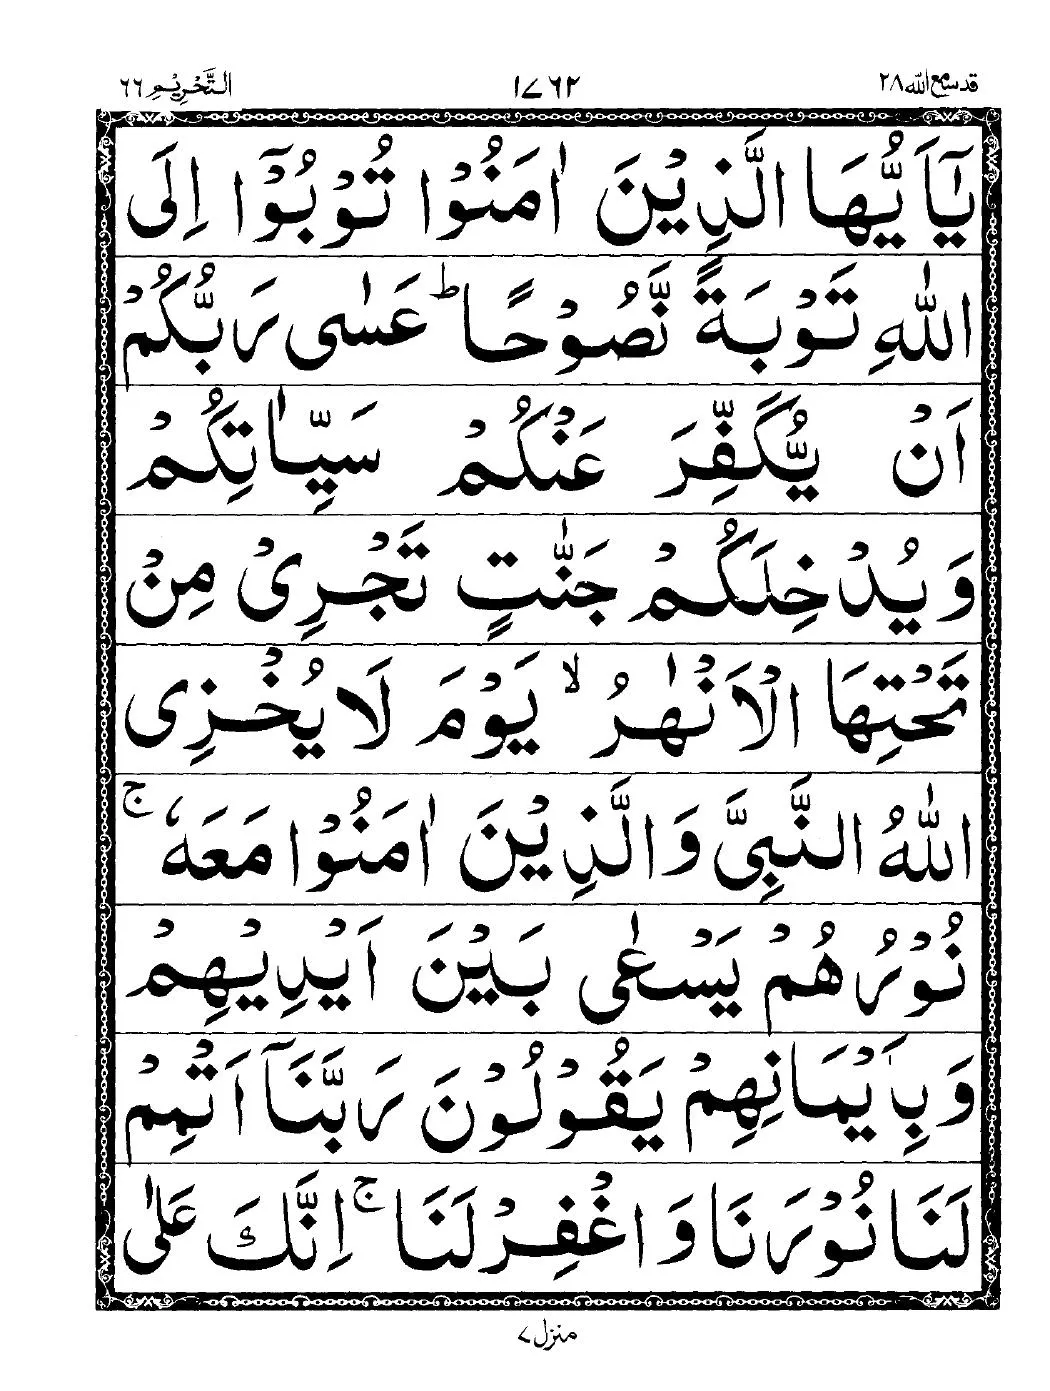 التَّحْرِيْمِ ٦٦ ١٧٦٢ قد سمع الله ٢٨
يٰۤاَيُّهَا الَّذِيْنَ اٰمَنُوْا تُوْبُوْۤا اِلَى
اللّٰهِ تَوْبَةً نَّصُوْحًا ؕ عَسٰى رَبُّكُمْ
اَنْ يُّكَفِّرَ عَنْكُمْ سَيِّاٰتِكُمْ
وَيُدْخِلَكُمْ جَنّٰتٍ تَجْرِيْ مِنْ
تَحْتِهَا الْاَنْهٰرُ ۙ يَوْمَ لَا يُخْزِى
اللّٰهُ النَّبِىَّ وَالَّذِيْنَ اٰمَنُوْا مَعَهٗ ۚ
نُوْرُهُمْ يَسْعٰى بَيْنَ اَيْدِيْهِمْ
وَبِاَيْمَانِهِمْ يَقُوْلُوْنَ رَبَّنَاۤ اَتْمِمْ
لَنَا نُوْرَنَا وَاغْفِرْ لَنَا ۚ اِنَّكَ عَلٰى
منزل ٧